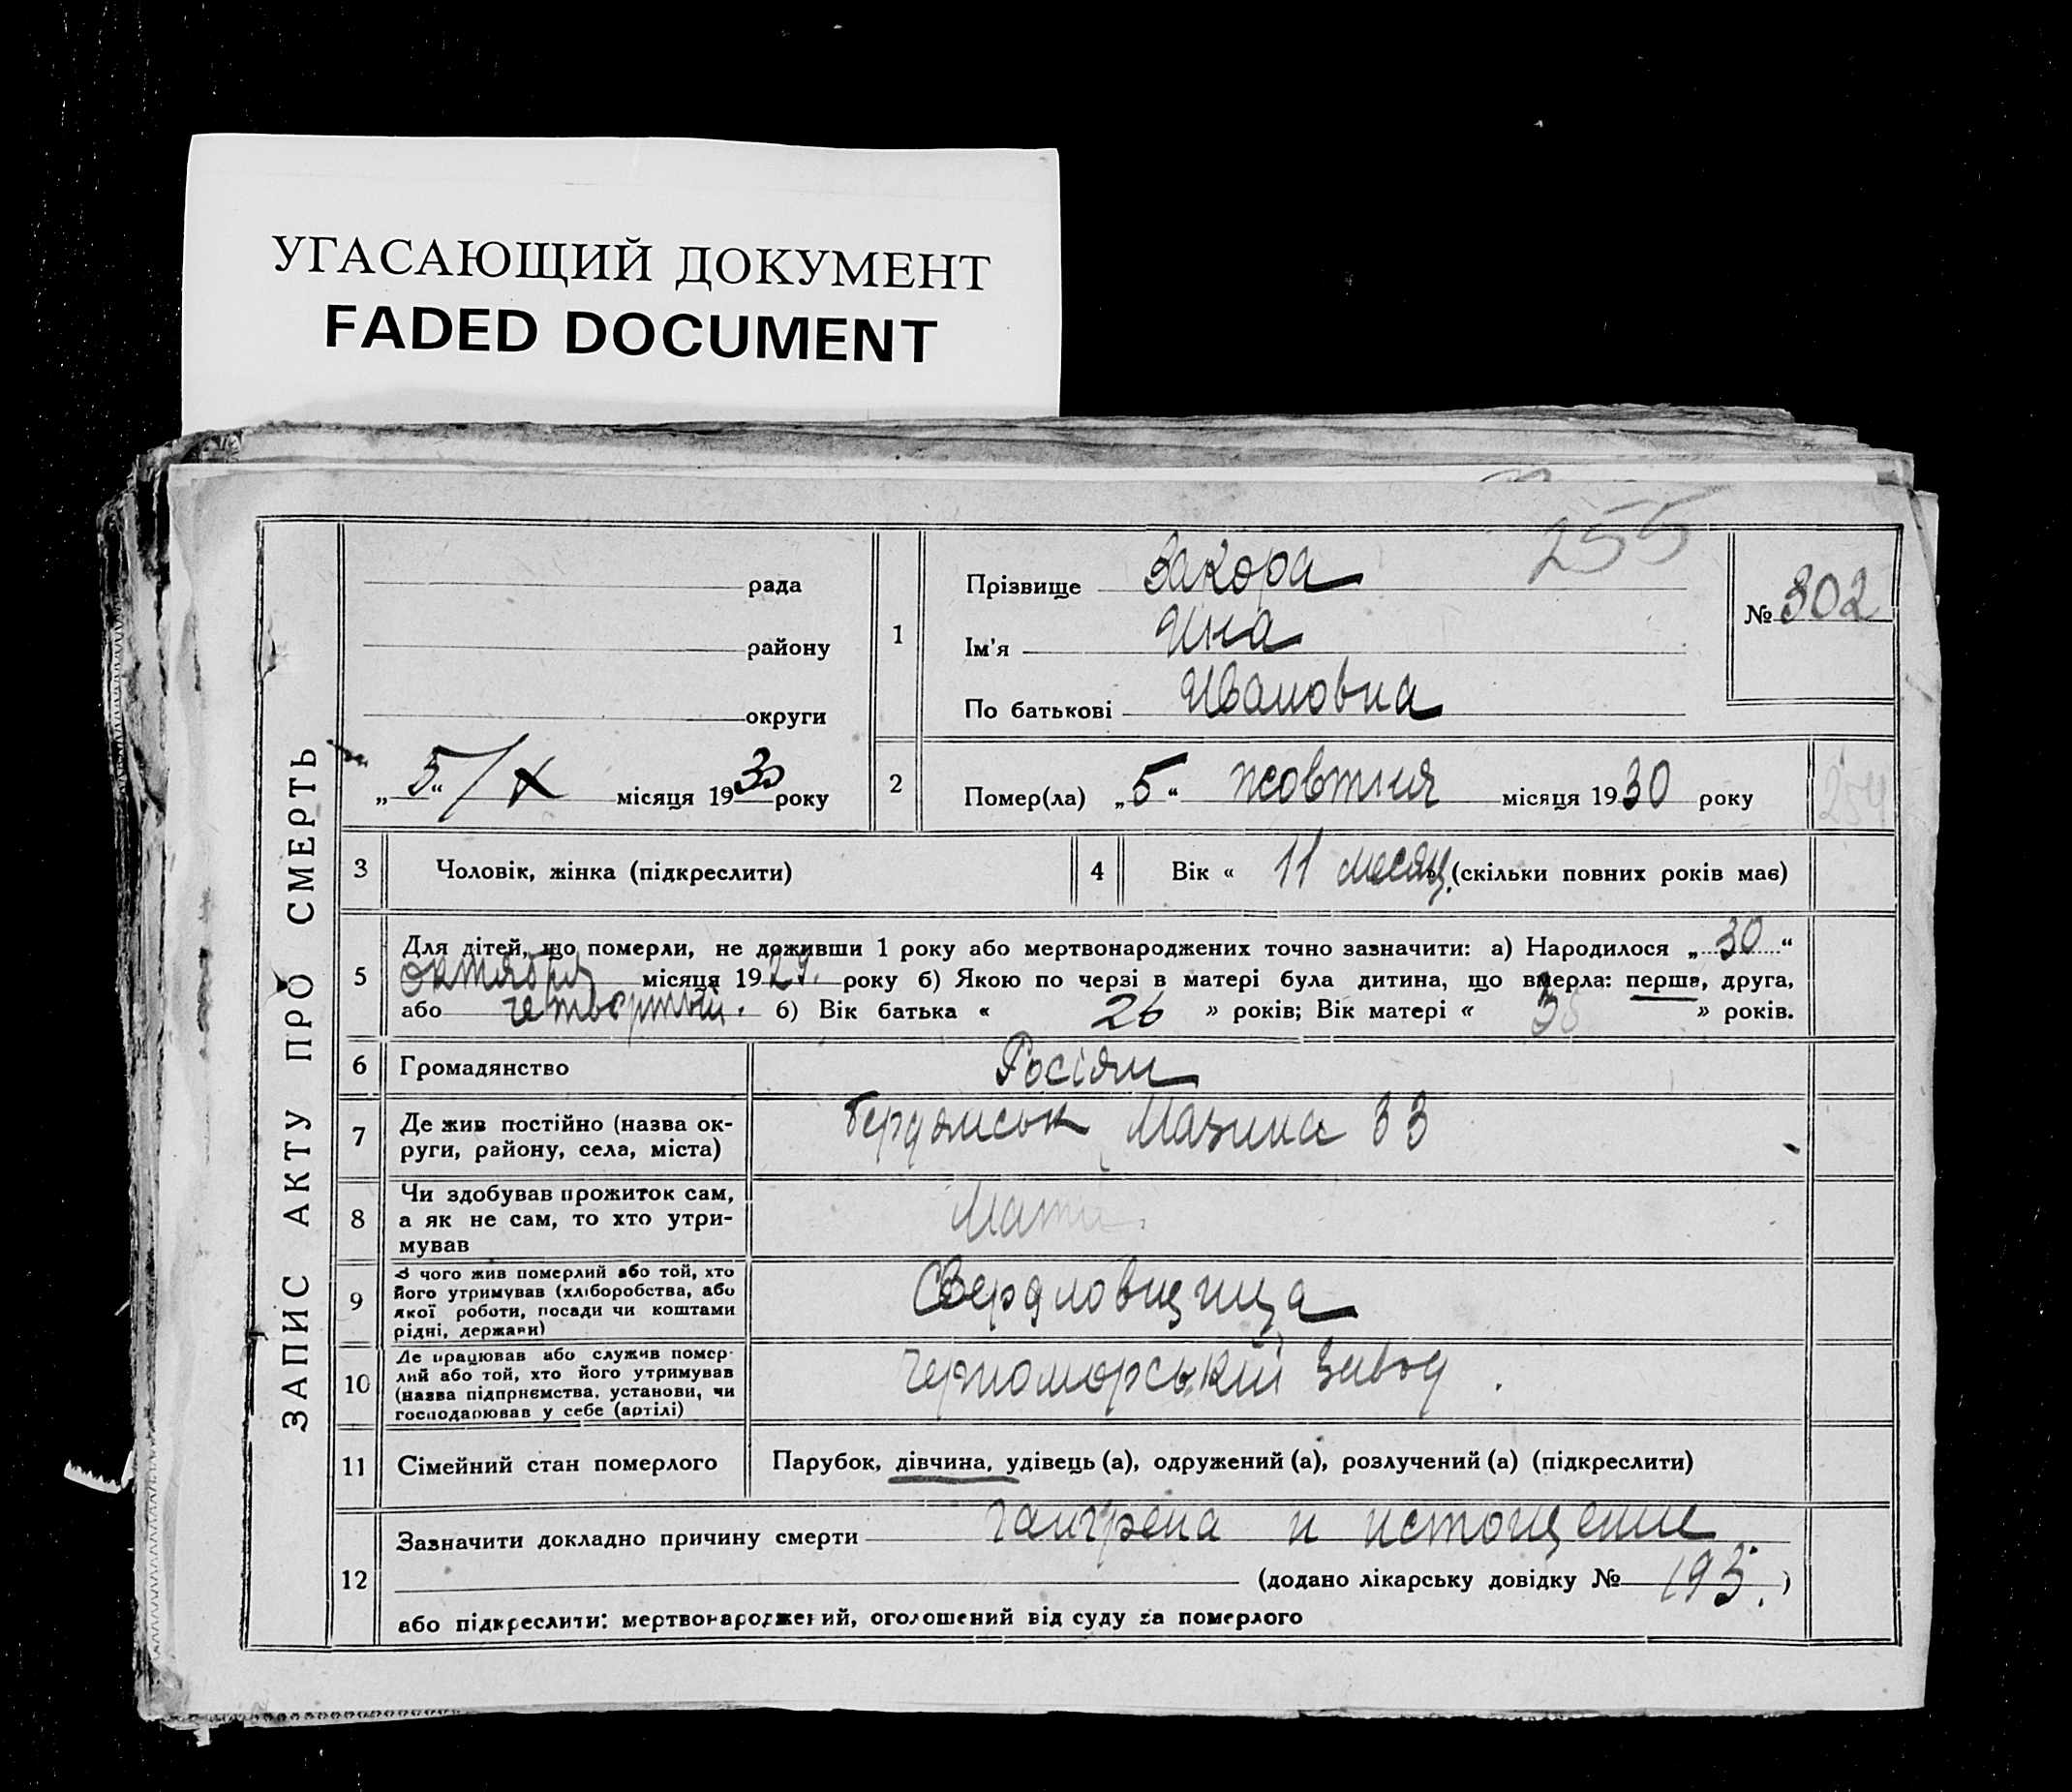 УГАСАЮЩИЙ ДОКУМЕНТ
FADED DOCUMENT
255
ЗАПИС АКТУ ПРО СМЕРТЬ
рада
району
округи
„5“/X місяця 1930 року
1
Прізвище Закора
Ім'я Ина
По батькові Ивановна
№ 302
2
Помер(ла) „5“ жовтня місяця 1930 року
254
3
Чоловік, жінка (підкреслити)
4
Вік « 11 месяц. (скільки повних років має)
5
Для дітей, що померли, не доживши 1 року або мертвонароджених точно зазначити: а) Народилося „30“
октября місяця 1929. року б) Якою по черзі в матері була дитина, що вмерла: перша, друга,
або четвортый. б) Вік батька « 26 » років; Вік матері « » років.
6
Громадянство
Росіян
7
Де жив постійно (назва ок-
руги, району, села, міста)
Бердянськ Мазина 33
8
Чи здобував прожиток сам,
а як не сам, то хто утри-
мував
Мати.
9
З чого жив померлий або той, хто
його утримував (хліборобства, або
якої роботи, посади чи коштами
рідні, держави)
Свердловщица
10
Де працював або служив помер-
лий або той, хто його утримував
(назва підприємства, установи, чи
господарював у себе (артілі)
Черноморський завод.
11
Сімейний стан померлого
Парубок, дівчина, удівець (а), одружений (а), розлучений (а) (підкреслити)
12
Зазначити докладно причину смерти гангрена и истощение
(додано лікарську довідку № 193.)
або підкреслити: мертвонароджений, оголошений від суду за померлого